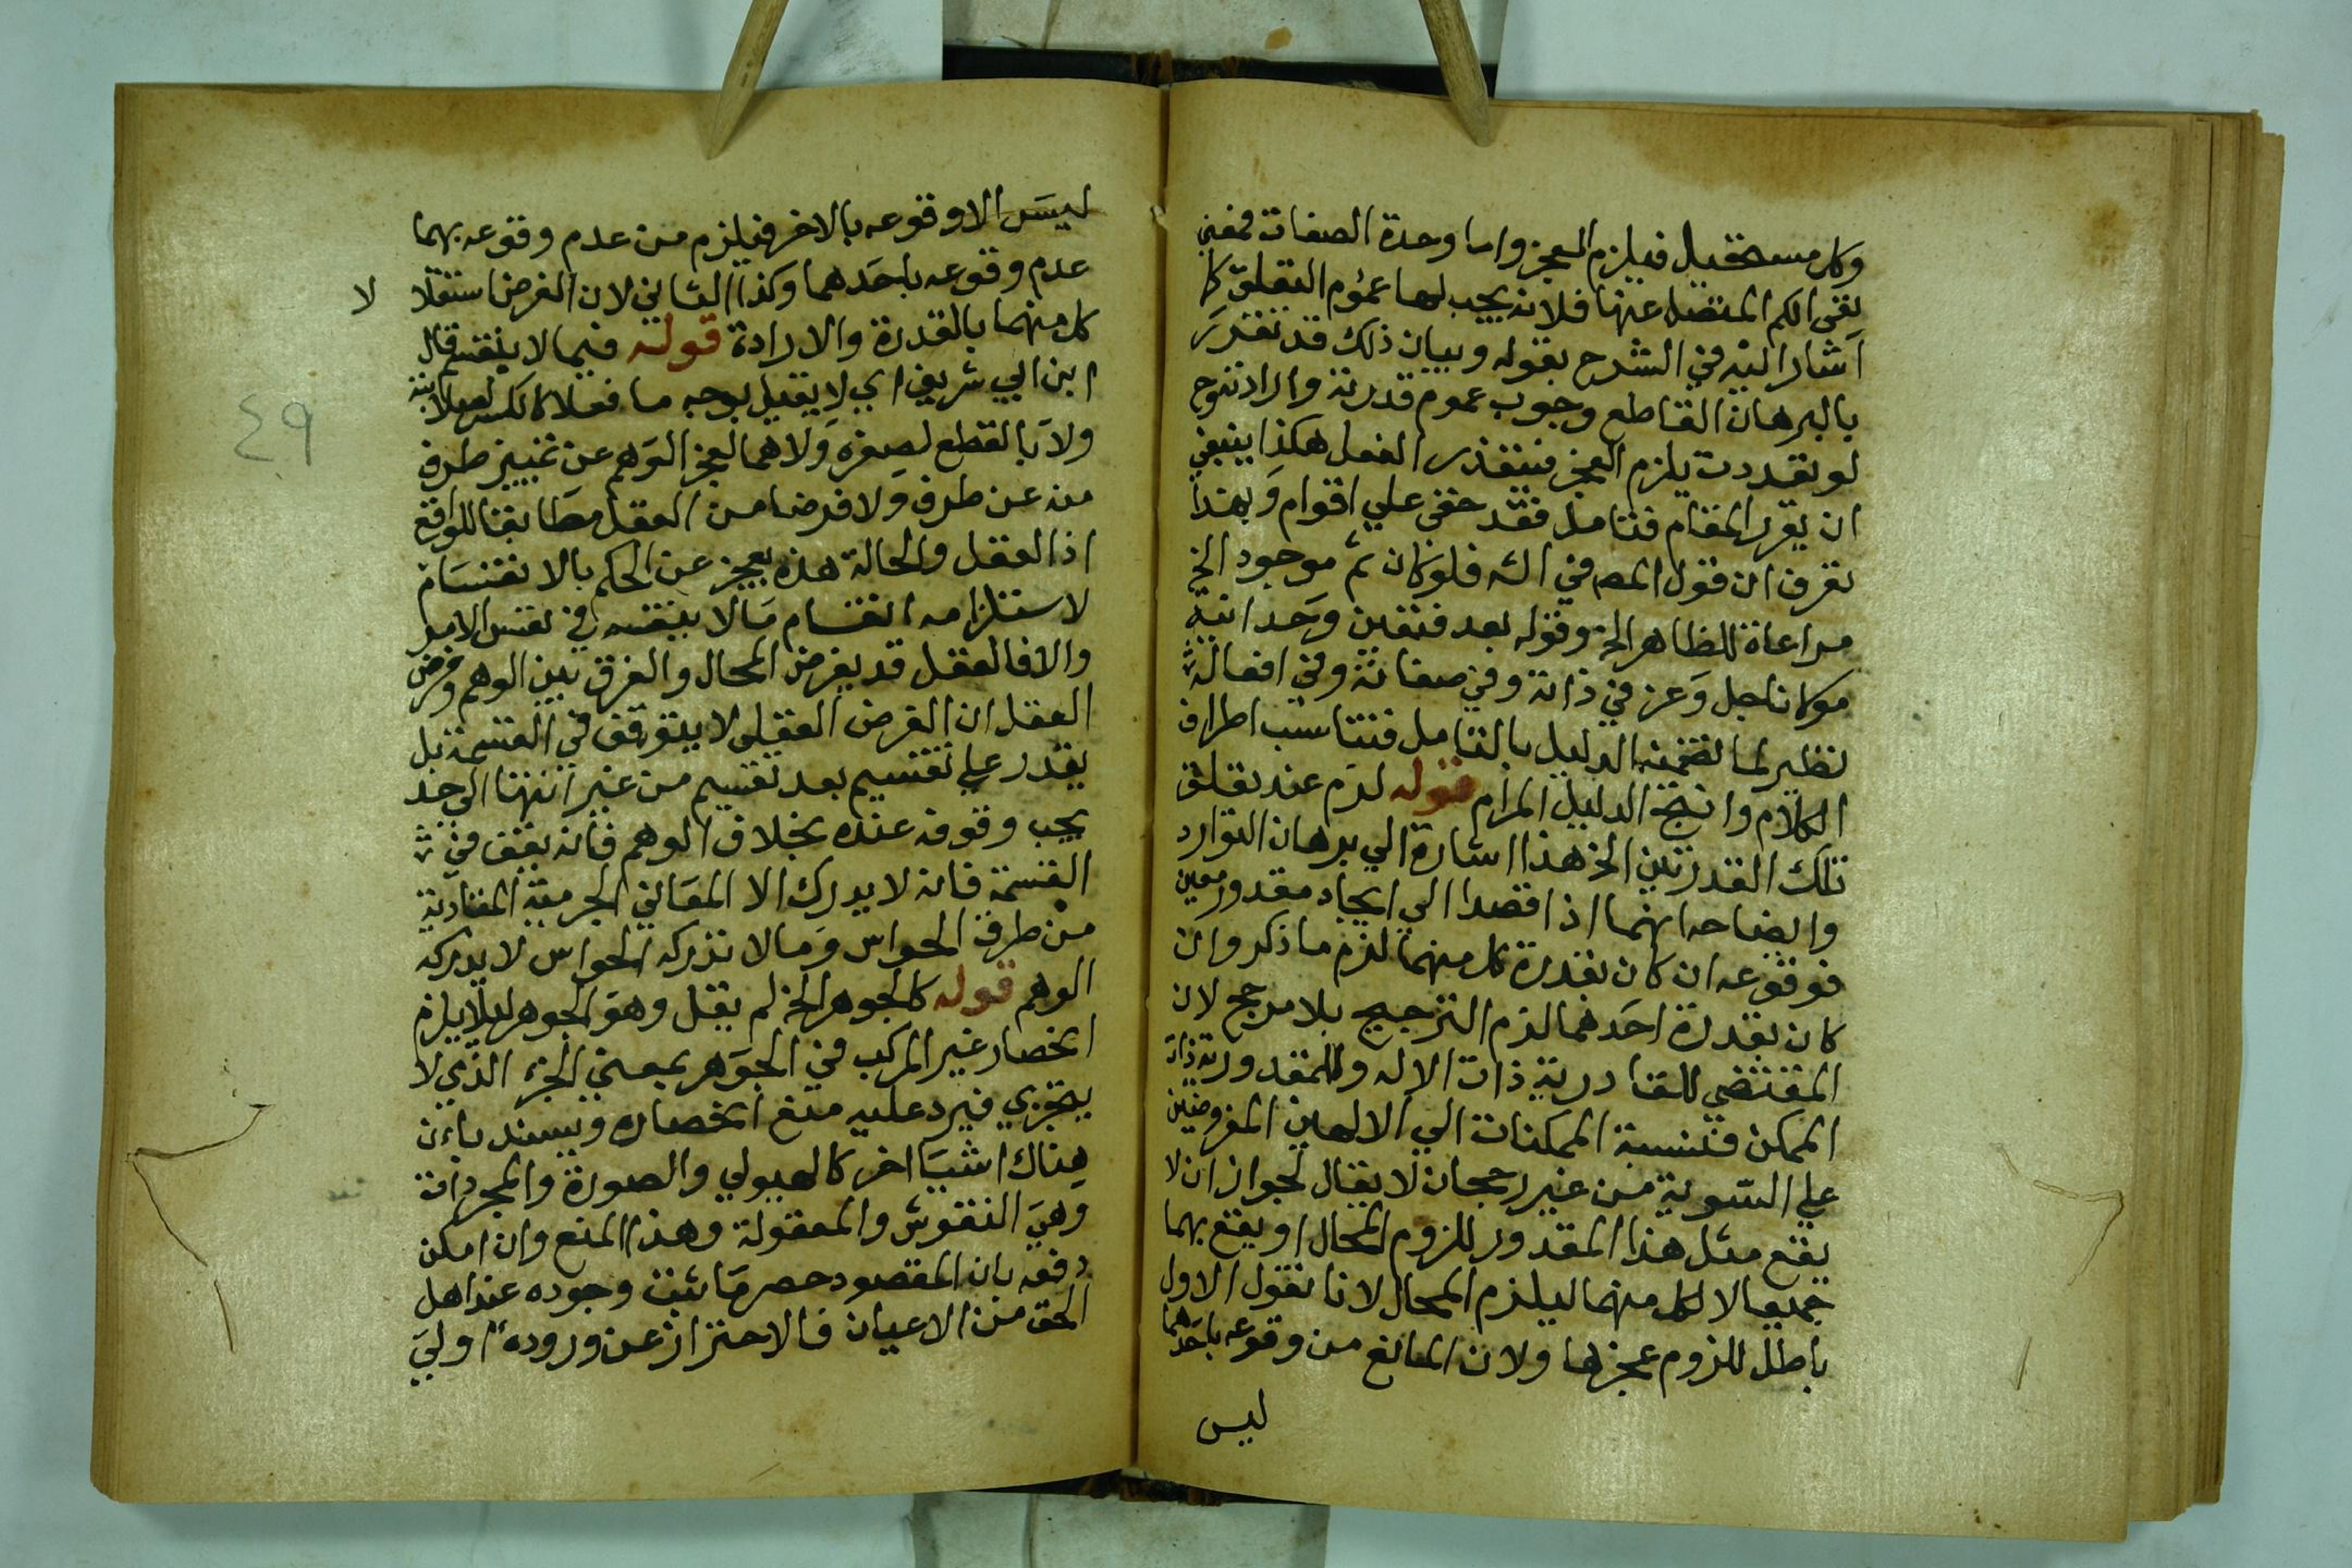 وكل مستحيل فيلزم العجز واما وحدة الصفات فمعنى
نفى الكم المنفصل عنها فلانه يجب لها عموم التعلق كما
اشار اليه في الشرح بقوله وبيان ذلك قد تقرر
بالبرهان القاطع وجوب عموم قدرته وارادته وح
لو تعددت يلزم العجز فيتعذر الفعل هكذا ينبغي
ان يقرر المقام فتامل فقد خفى علي اقوام وبهذا
تعرف ان قول المص في الشه فلو كان ثم موجود الخ
مراعاة للظاهر الخ وقوله بعد فتعين وحدانية
مولانا جل وعز في ذاته وفي صفاته وفي افعاله
نظير لما تضمنه الدليل بالتامل فتتناسب اطراف
الكلام وانتج الدليل المرام قوله لزم عند تعلق
تلك القدرتين الخ هذا اشارة الي برهان التوارد
وايضاحه انهما اذا قصدا الي ايجاد مقدور معين
فوقوعه ان كان بقدرة كل منهما لزم ما ذكر وان
كان بقدرة احدهما لزم الترجيح بلا مرجح لان
المقتضي للقادرية ذات الاله وللمقدورية ذات
الممكن فنسبة الممكنات الي الالهين المفروضين
علي السوية من غير رجحان لا يقال لجواز ان لا
يقع مثل هذا المقدور للزوم المحال او يقع بهما
جميعا لا لكل منهما ليلزم المحال لانا نقول الاول
باطل للزوم عجزها ولان المانع من وقوعه باحدهما
ليس
ليس الا وقوعه بالاخر فيلزم من عدم وقوعه بهما
عدم وقوعه باحدهما وكذا الثاني لان الفرض استقلا
لا
كل منهما بالقدرة والارادة قوله فيما لا ينقسم قال
ابن ابي شريف اي لا يقبل بوجه ما فعلا كالكسر لصلابته
ولا بالقطع لصغره ولا هما لعجز الوهم عن تمييز طرف
منه عن طرف ولا فرضا من العقل مطابقا للواقع
اذ العقل والحالة هذه يعجز عن الحكم بالانقسام
لاستلزامه انقسام ما لا ينقسم في نفس الامر
والا فالعقل قد يفرض المحال والفرق بين الوهم وفرض
العقل ان الفرض العقلي لا يتوقف في القسمة بل
يقدر علي تقسيم بعد تقسيم من غير انتها الي حد
يجب وقوفه عنده بخلاف الوهم فانه يقف في
القسمة فانه لا يدرك الا المعاني الجزمية المتادية
من طرف الحواس وما لا تدركه الحواس لا يدركه
الوهم قوله كالجوهر الخ لم يقل وهو الجوهر ليلا يلزم
انحصار غير المركب في الجوهر بمعني الجزء الذي لا
يتجزي فيرد عليه منع انحصاره ويسند بان
هناك اشيا اخر كالهيولي والصورة والمجردات
وهي النفوش والمعقولة وهذا المنع وان امكن
دفعه بان المقصود حصر ما ثبت وجوده عند اهل
الحق من الاعيان فالاحتراز عن وروده اولي
٤٩